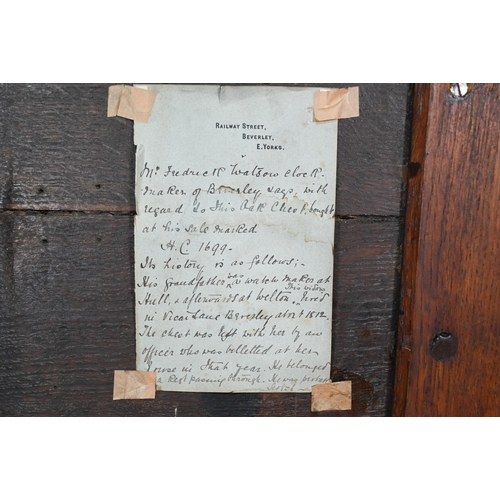 RAILWAY STREET,
BEVERLEY,
E. YORKS.
Mr. Fredrick Watson Clock
maker of Beverley says, with
regard to this Oak Chest, bought
at his sale marked
H.C. 1699-
Its history is as follows;-
His Grandfather was a watch maker at
Hull, & afterwards at Welton, This widow lived
in Vicar Lane Beverley about 1812.
The chest was left with her by an
officer who was billetted at her
house in that year. He belonged
to a Regt passing through.